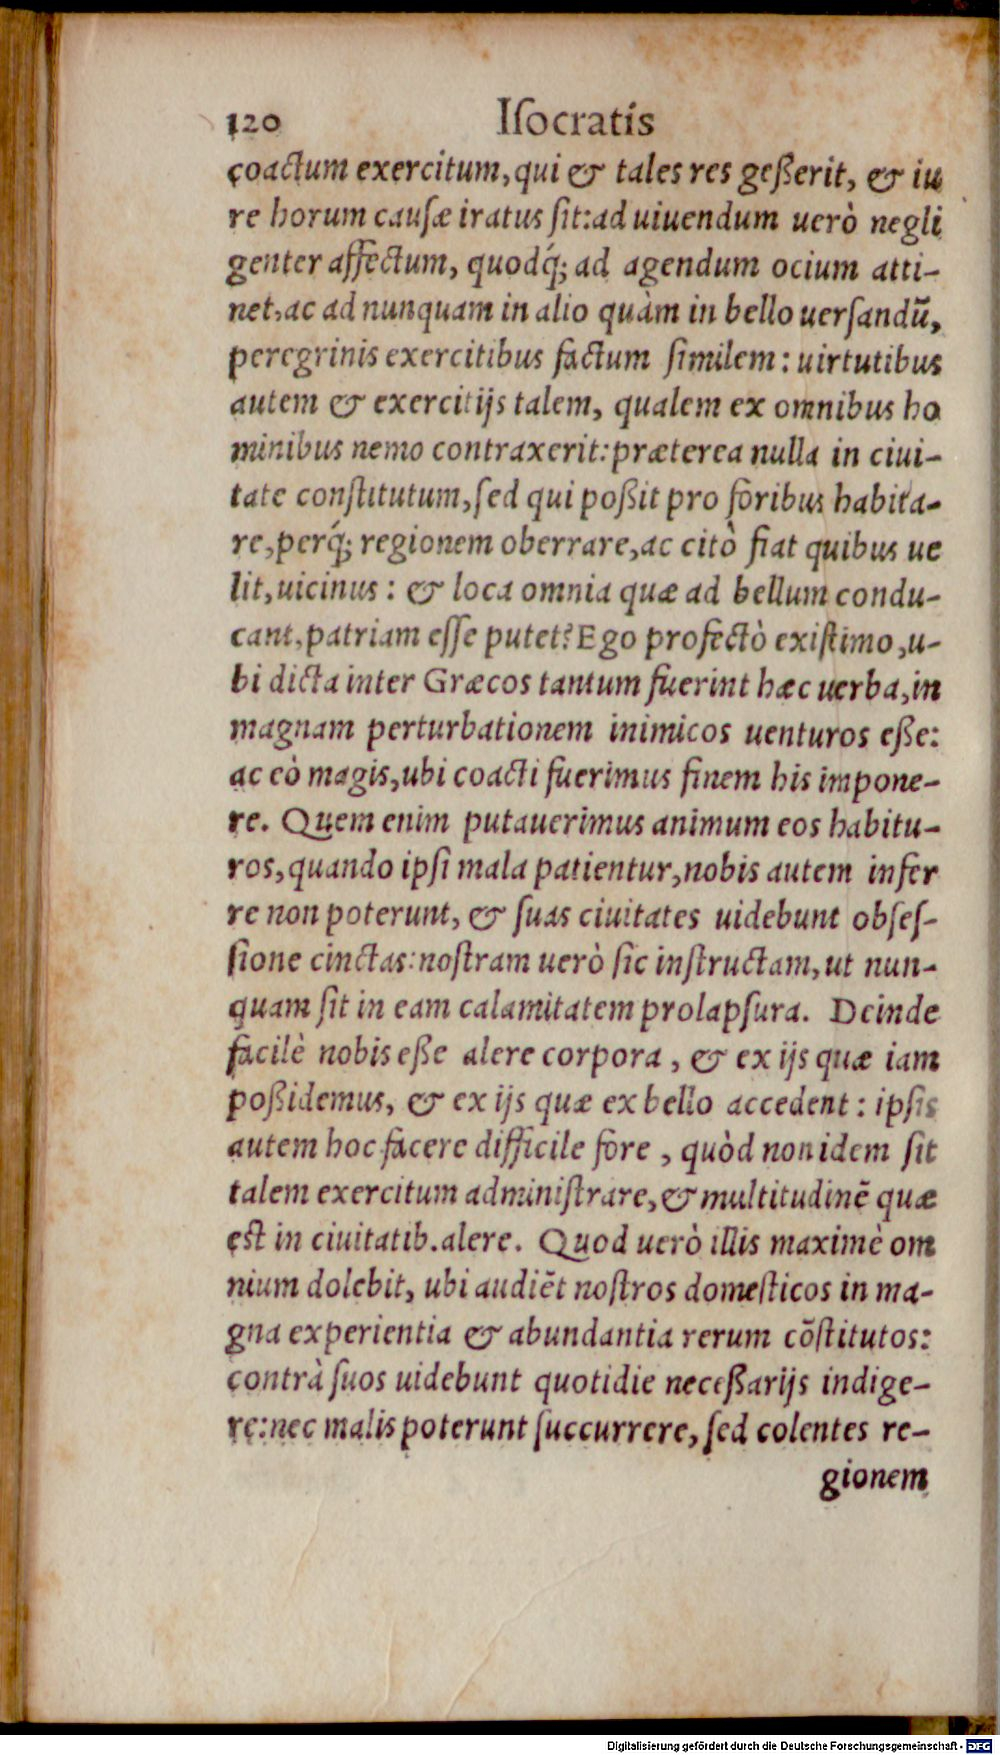 120 Iſocratis
coactum exercitum, qui & tales res geßerit, & iu
re horum cauſæ iratus ſit: ad uiuendum uerò negli
genter affectum, quodq́; ad agendum ocium atti-
net, ac ad nunquam in alio quàm in bello uerſandū,
peregrinis exercitibus factum ſimilem: uirtutibus
autem & exercitijs talem, qualem ex omnibus ho
minibus nemo contraxerit: præterea nulla in ciui-
tate conſtitutum, ſed qui poßit pro foribus habita-
re, perq́; regionem oberrare, ac citò fiat quibus ue
lit, uicinus: & loca omnia quæ ad bellum condu-
cant, patriam eſſe putet? Ego profectò exiſtimo, u-
bi dicta inter Græcos tantum fuerint hæc uerba, in
magnam perturbationem inimicos uenturos eße:
ac eò magis, ubi coacti fuerimus finem his impone-
re. Quem enim putauerimus animum eos habitu-
ros, quando ipſi mala patientur, nobis autem infer
re non poterunt, & ſuas ciuitates uidebunt obſeſ-
ſione cinctas: noſtram uerò ſic inſtructam, ut nun-
quam ſit in eam calamitatem prolapſura. Deinde
facilè nobis eße alere corpora, & ex ijs quæ iam
poßidemus, & ex ijs quæ ex bello accedent: ipſis
autem hoc facere difficile fore, quòd non idem ſit
talem exercitum adminiſtrare, & multitudinē quæ
eſt in ciuitatib. alere. Quod uerò illis maximè om
nium dolebit, ubi audiēt noſtros domeſticos in ma-
gna experientia & abundantia rerum cōſtitutos:
contrà ſuos uidebunt quotidie neceßarijs indige-
re: nec malis poterunt ſuccurrere, ſed colentes re-
gionem
Digitalisierung gefördert durch die Deutsche Forschungsgemeinschaft - DFG